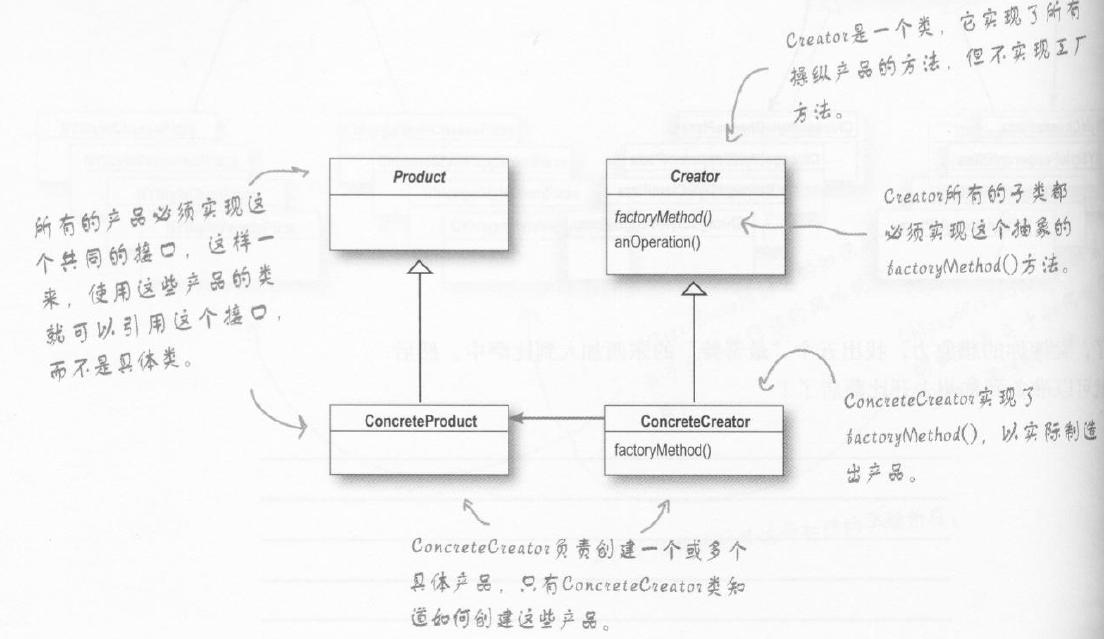 Creator是一个类，它实现了所有
操纵产品的方法，但不实现工厂
方法。
Product
Creator
factoryMethod()
anOperation()
所有的产品必须实现这
个共同的接口，这样一
来，使用这些产品的类
就可以引用这个接口，
而不是具体类。
Creator所有的子类都
必须实现这个抽象的
factoryMethod()方法。
ConcreteProduct
ConcreteCreator
factoryMethod()
ConcreteCreator实现了
factoryMethod()，以实际制造
出产品。
ConcreteCreator负责创建一个或多个
具体产品，只有ConcreteCreator类知
道如何创建这些产品。